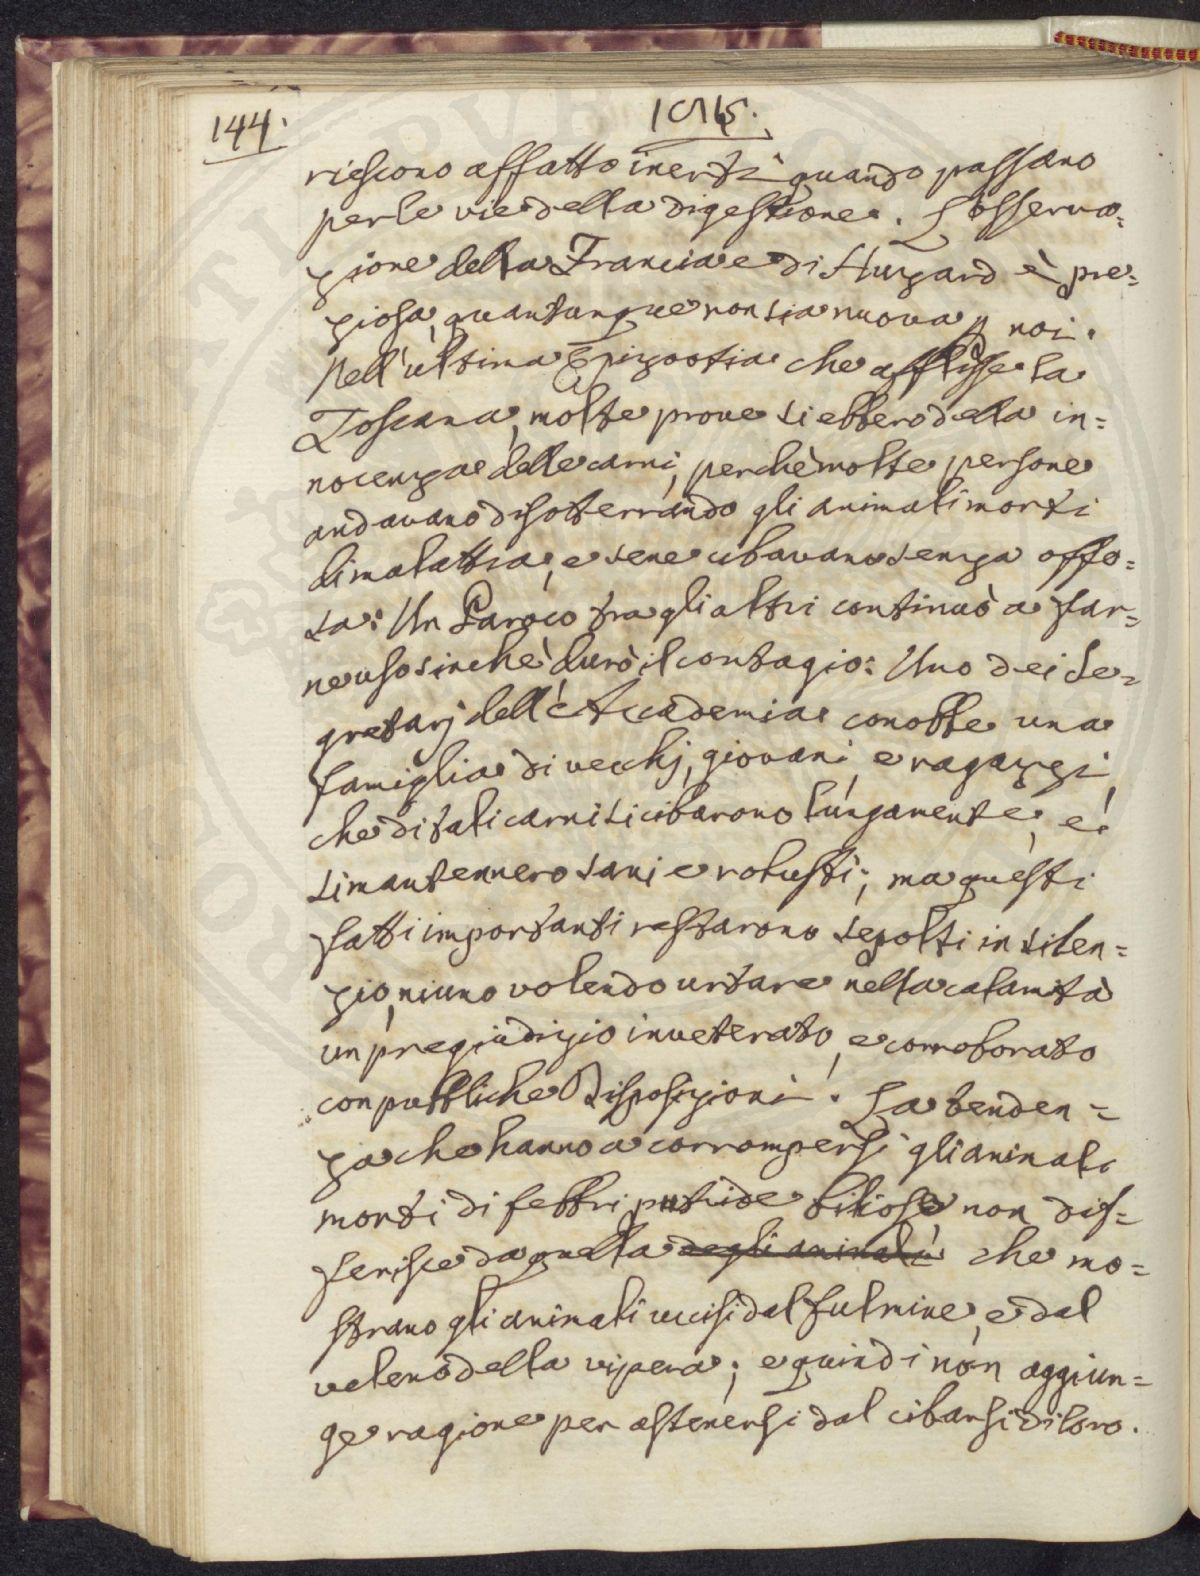 144.
riescono affatto inerti quando passano
per le vie della digestione. L'osserva=
zione della Francia e di Huzard è pre=
ziosa, quantunque non sia nuova p noi.
Nell'ultima Epizootia che afflisse la
Toscana, molte prove si ebbero della in=
nocenza delle carni, perchè molte persone
andavano disotterrando gli animali morti
di malattia, e sene cibavano senza offe=
sa: Un Paroco tra gli altri continuò a far=
ne uso sinchè durò il contagio: Uno dei Se=
gretarj dell'Accademia conobbe una
famiglia di vecchj, giovani, e ragazzi,
che di tali carni si cibarono lungamente, e
si mantennero sani e robusti; ma questi
fatti importanti restarono sepolti in silen=
zio, niuno volendo urtare nella calamità
un pregiudizio inveterato, e corroborato
con pubbliche Disposizioni. La tenden=
za che hanno a corrompersi gli animali
morti di febbri putride biliose non dif=
ferisce da quella degli animali che mo=
strano gli animali uccisi dal fulmine, e dal
veleno della vipera; e quindi non aggiun=
ge ragione per astenersi dal cibarsi di loro.